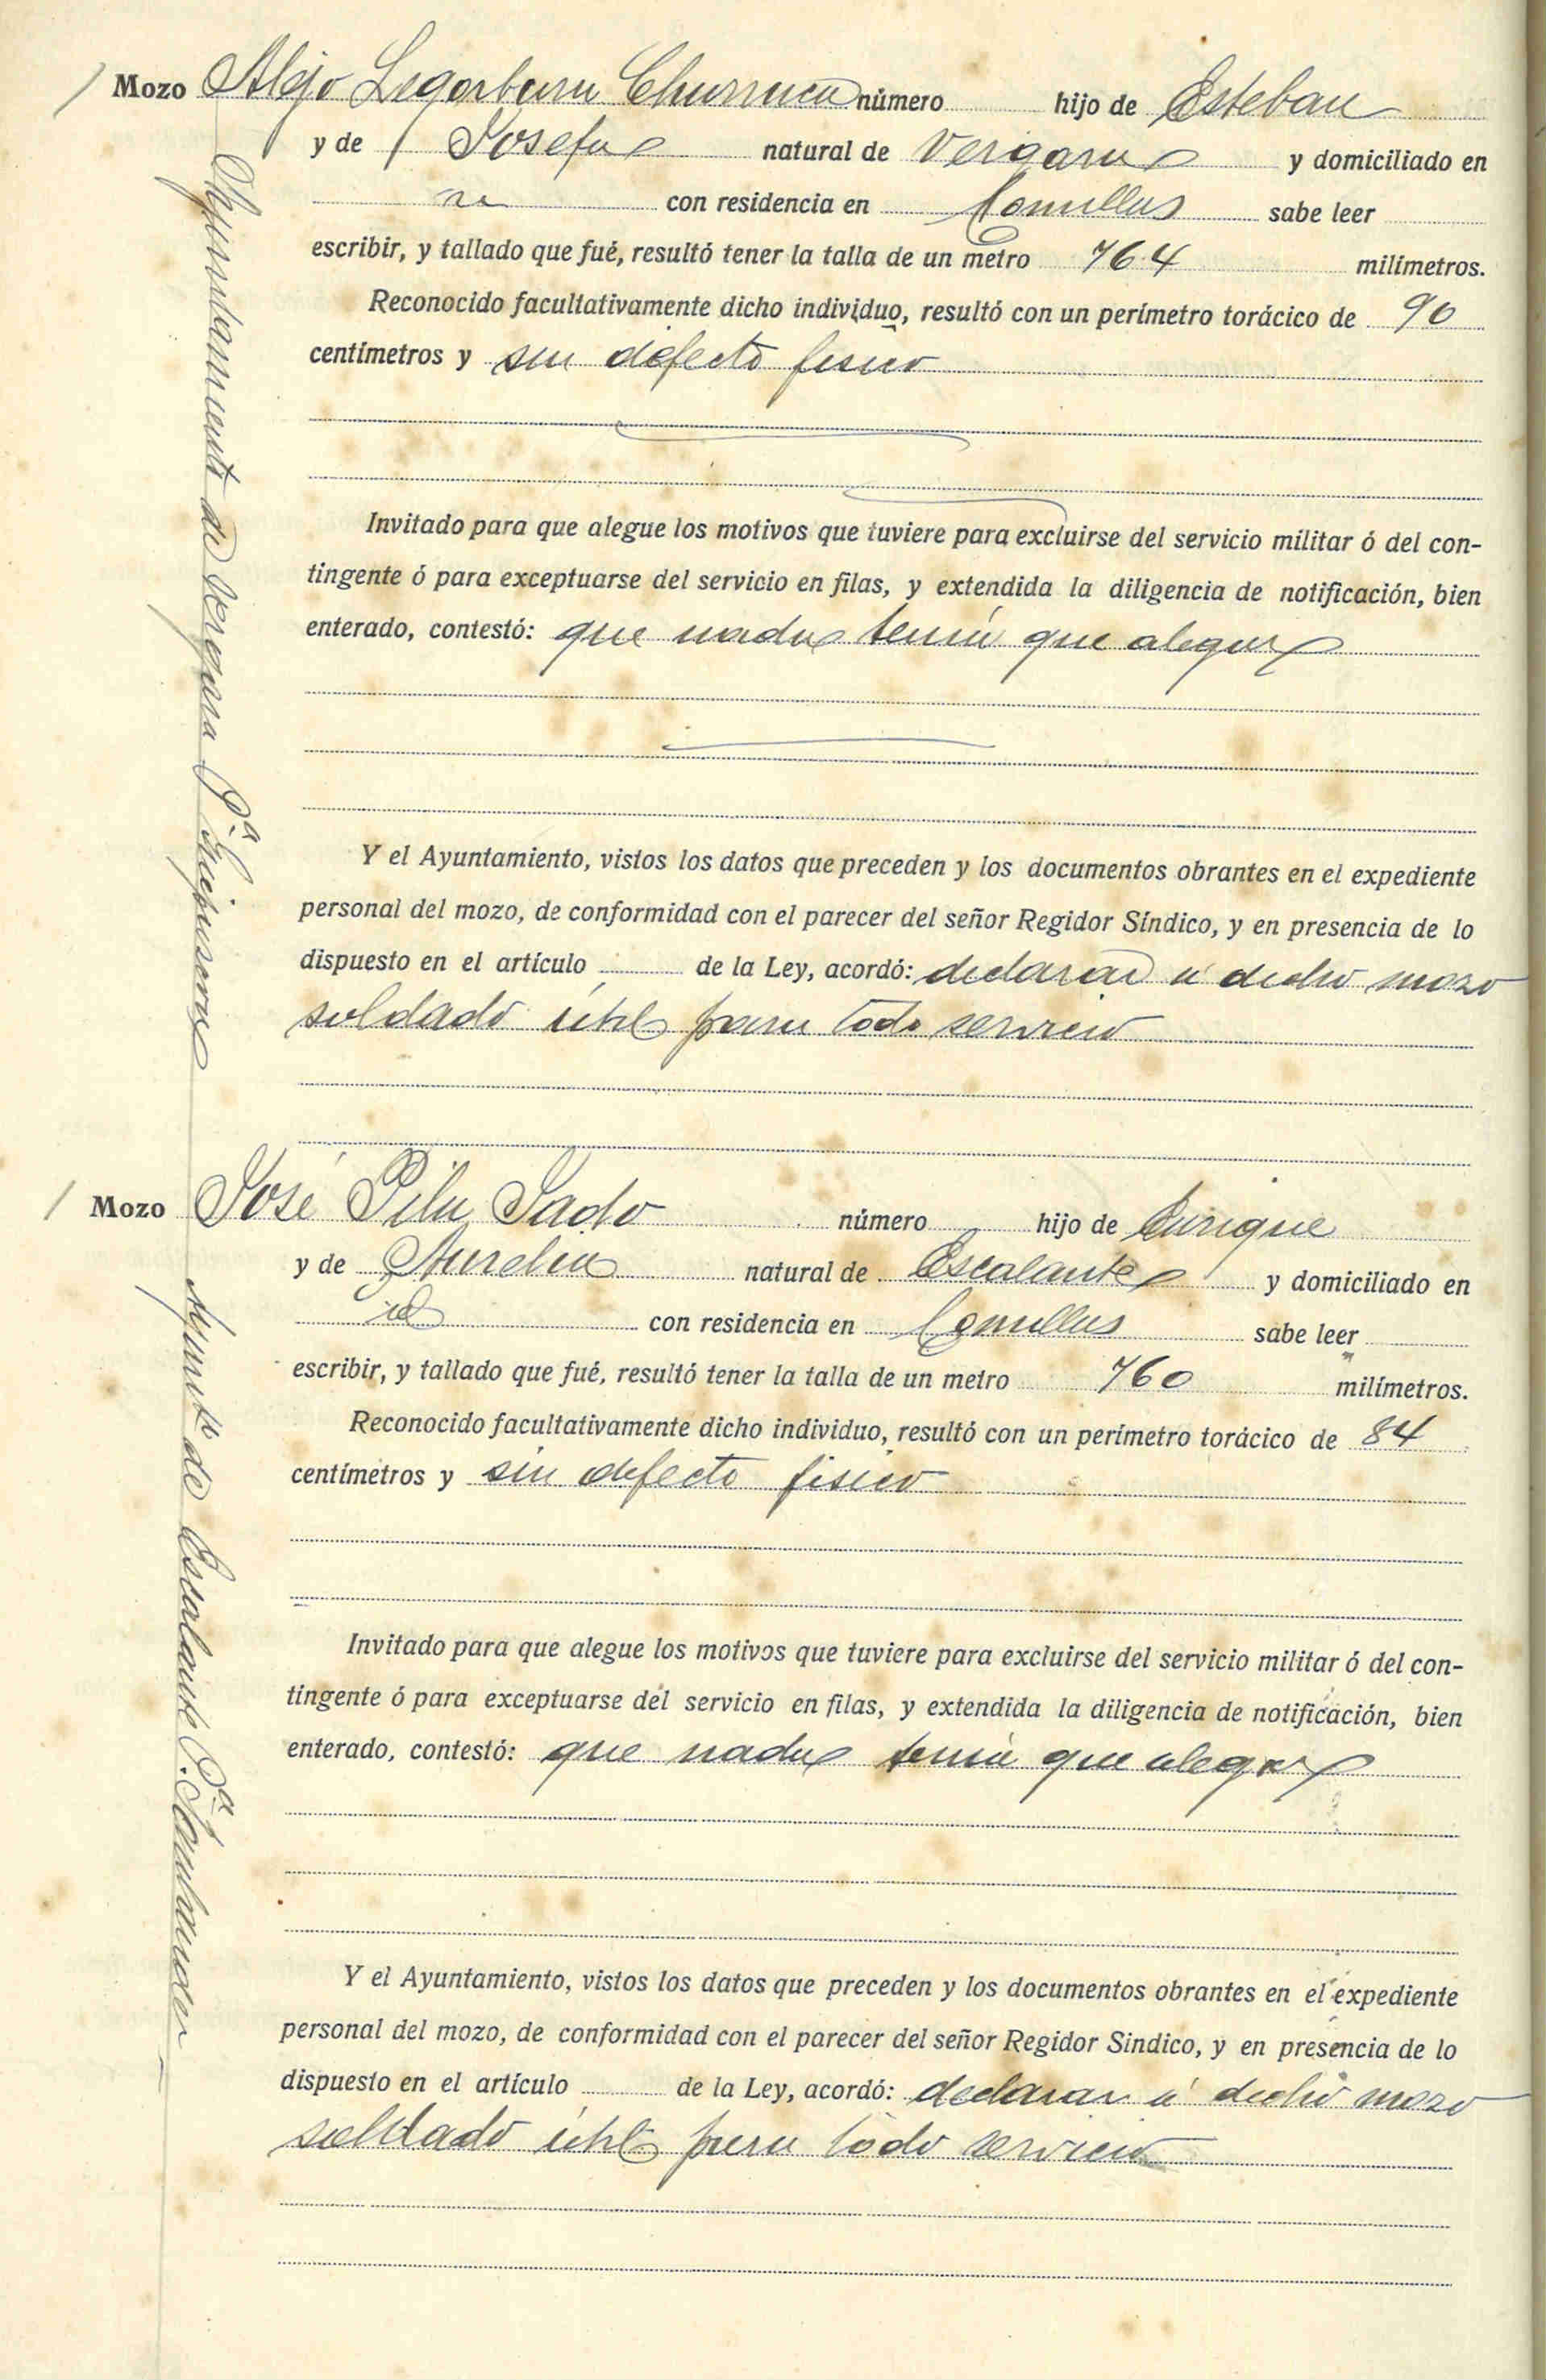 Mozo Alejo Legorburu Churruca número hijo de Esteban
y de Josefa natural de Vergara y domiciliado en
con residencia en Comillas sabe leer
escribir, y tallado que fué, resultó tener la talla de un metro 764 milímetros.
Reconocido facultativamente dicho individuo, resultó con un perímetro torácico de 90
centímetros y sin defecto fisico
Invitado para que alegue los motivos que tuviere para excluirse del servicio militar ó del con-
tingente ó para exceptuarse del servicio en filas, y extendida la diligencia de notificación, bien
enterado, contestó: que nada tenia que alegar
Y el Ayuntamiento, vistos los datos que preceden y los documentos obrantes en el expediente
personal del mozo, de conformidad con el parecer del señor Regidor Síndico, y en presencia de lo
dispuesto en el artículo de la Ley, acordó: declarar á dicho mozo
soldado útil para todo servicio
Ayuntamiento de Vergara Pª Guipuzcoa
Mozo José Pila Sado número hijo de Enrique
y de Aurelia natural de Escalante y domiciliado en
id con residencia en Comillas sabe leer
escribir, y tallado que fué, resultó tener la talla de un metro 760 milímetros.
Reconocido facultativamente dicho individuo, resultó con un perímetro torácico de 84
centímetros y sin defecto fisico
Invitado para que alegue los motivos que tuviere para excluirse del servicio militar ó del con-
tingente ó para exceptuarse del servicio en filas, y extendida la diligencia de notificación, bien
enterado, contestó: que nada tenia que alegar
Y el Ayuntamiento, vistos los datos que preceden y los documentos obrantes en el expediente
personal del mozo, de conformidad con el parecer del señor Regidor Sindico, y en presencia de lo
dispuesto en el artículo de la Ley, acordó: declarar á dicho mozo
soldado útil para todo servicio
Ayunto de Escalante Pª Santander